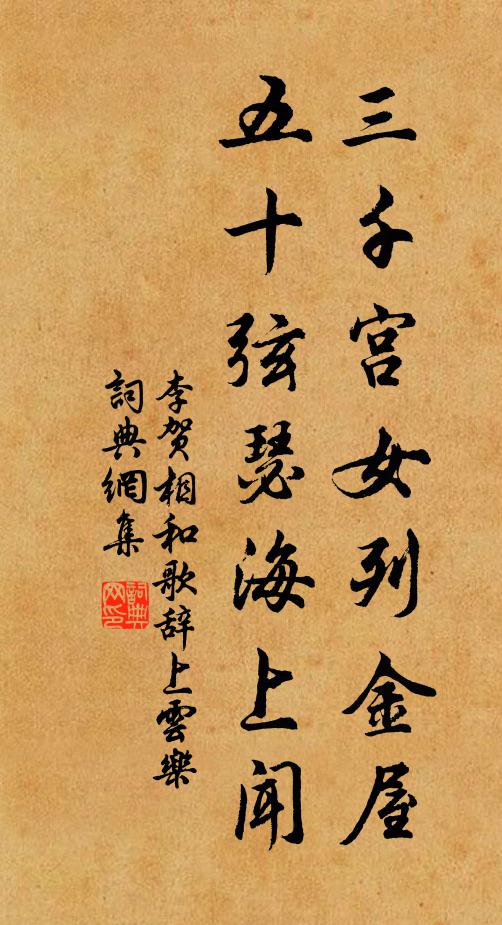 三千宫女列金屋
五十弦瑟海上闻
李贺相和歌辞上雲樂
詞典網集
詞典网印